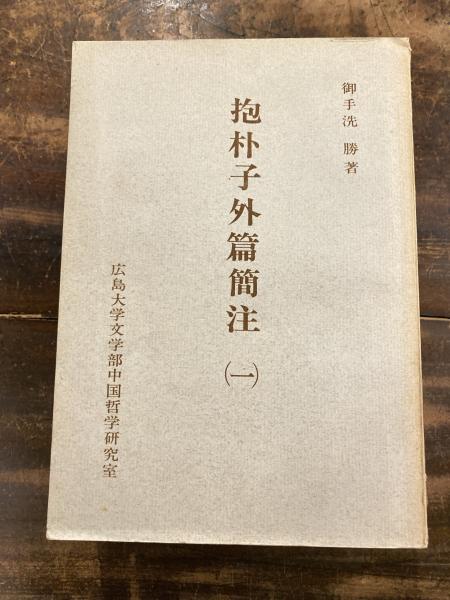 御手洗 勝著
抱朴子外篇簡注 (一)
広島大学文学部中国哲学研究室